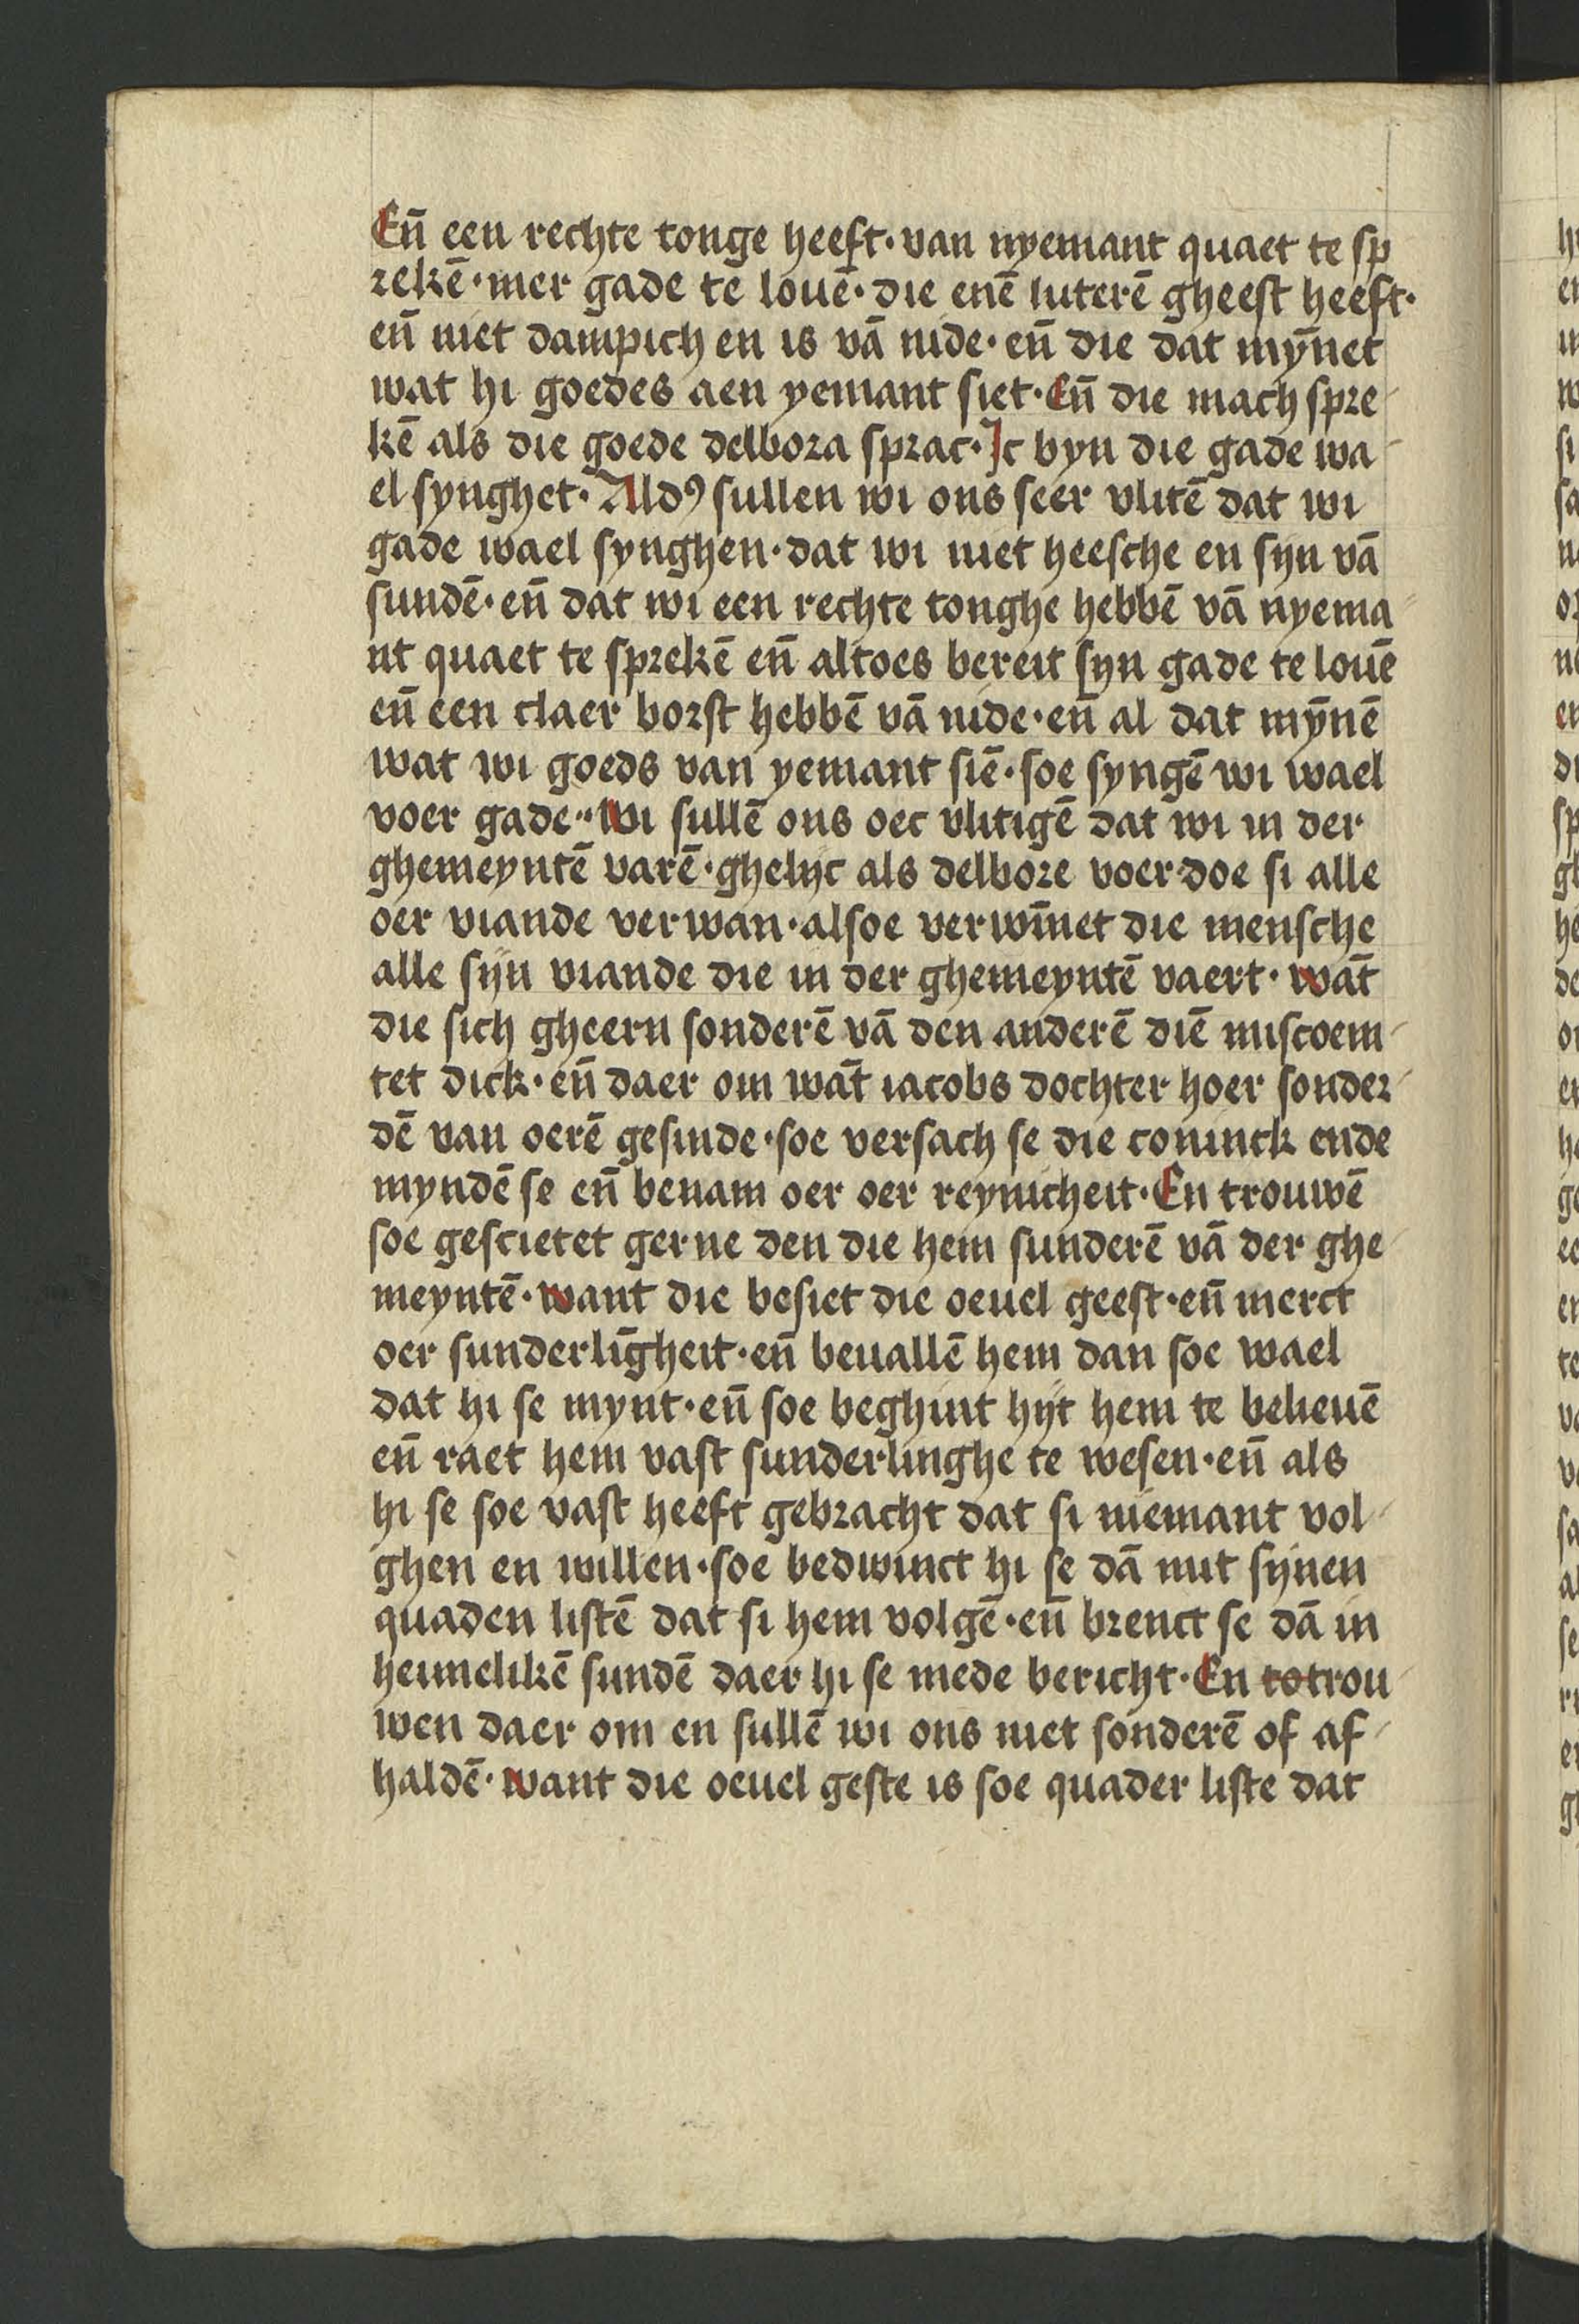 En̄ een rechte tonge heeft · van nyemant quaet te sp
rekē · mer gade te louē · die enē luterē gheest heeft ·
en̄ niet dampich en is vā nide · en̄ die dat mȳnet
wat hi goedes aen yemant siet · En̄ die mach spre-
kē als die goede delbora sprac · Jc byn die gade wa-
el synghet · Aldꝰ sullen wi ons seer vlitē dat wi
gade wael synghen · dat wi niet heesche en sijn vā
sundē · en̄ dat wi een rechte tonghe hebbē vā nyema-
nt quaet te sprekē en̄ altoes bereit syn gade te louē
en̄ een claer borst hebbē vā nide · en̄ al dat mȳnē
wat wi goeds van yemant siē · soe syngē wi wael
voer gade · Wi sullē ons oec vlitigē dat wi in der
ghemeyntē varē · ghelijc als delbore voer doe si alle
oer viande verwan · alsoe verwīnet die mensche
alle sijn viande die in der ghemeyntē vaert · wāt
die sich gheern sonderē vā den anderē diē miscoem-
tet dick · en̄ daer om wāt iacobs dochter hoer sonder-
dē van oerē gesinde · soe versach se die coninck ende
myndē se en̄ benam oer oer reynicheit · En trouwē
soe gescietet gerne den die hem sunderē vā der ghe-
meyntē · want die besiet die oeuel geest · en̄ merct
oer sunderlīgheit · en̄ beuallē hem dan soe wael
dat hi se mynt · en̄ soe beghint hijt hem te belieuē
en̄ raet hem vast sunderlinghe te wesen · en̄ als
hi se soe vast heeft gebracht dat si niemant vol-
ghen en willen · soe bedwinct hi se dā mit sijnen
quaden listē dat si hem volgē · en̄ brenct se dā in
heimelikē sundē daer hi se mede bericht · En totrou-
wen daer om en sullē wi ons niet sonderē of af-
haldē · want die oeuel geste is soe quader liste dat